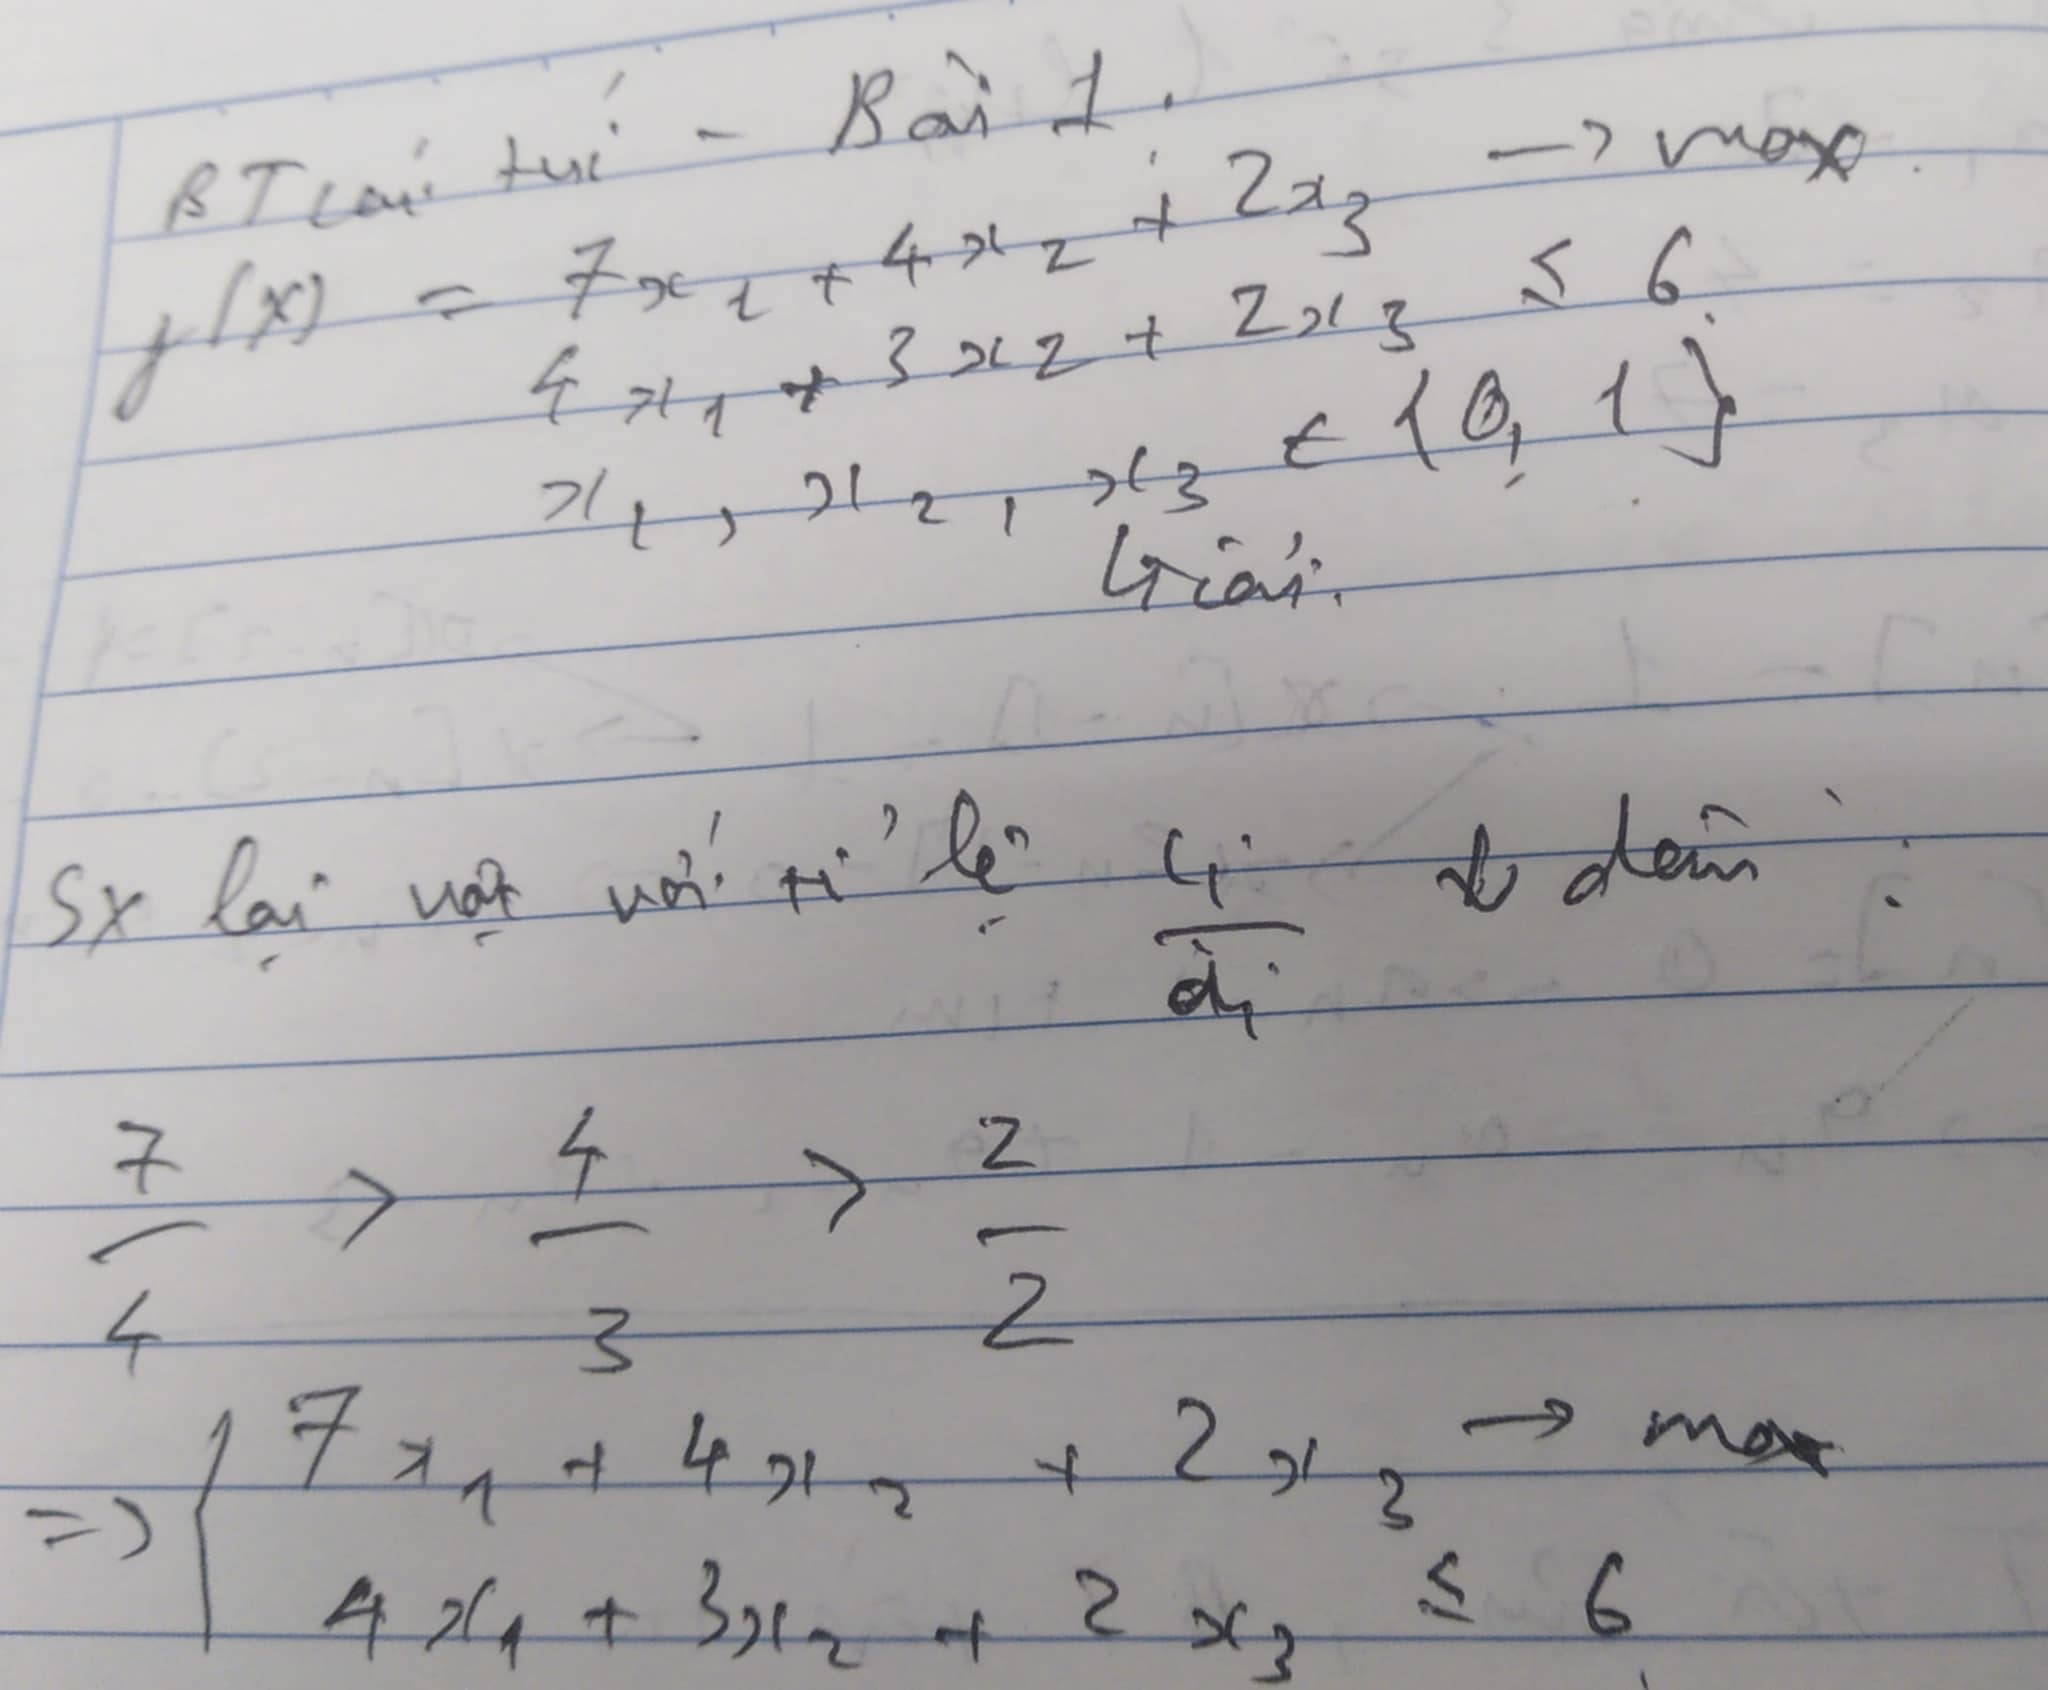 BT cái túi - Bài 1.
f(x) = 7x1 + 4x2 + 2x3 -> max.
4x1 + 3x2 + 2x3 ≤ 6
x1, x2, x3 ∈ {0, 1}
Giải.
Sx lại vật với tỉ lệ ci/ai ↓ dần:
7/4 > 4/3 > 2/2
=> { 7x1 + 4x2 + 2x3 -> max
4x1 + 3x2 + 2x3 ≤ 6